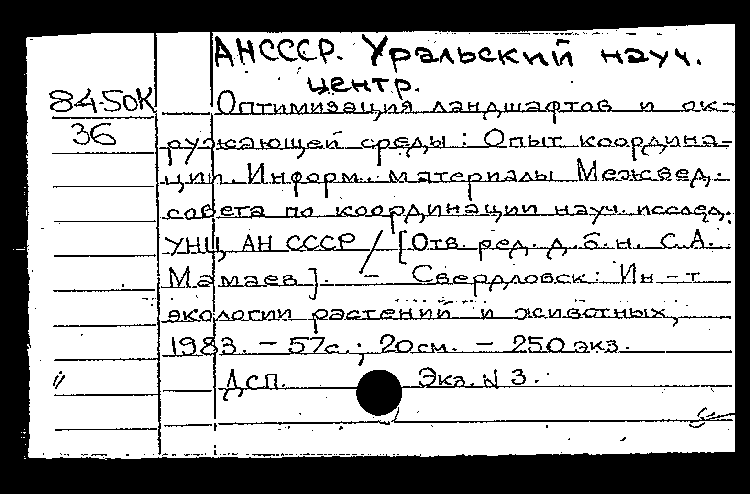 АН СССР. Уральский науч.
центр.
84-50К
36
Оптимизация ландшафтов и ок-
ружающей среды: Опыт координа-
ции. Информ. материалы Межвед.
совета по координации науч. исслед.
УНЦ АН СССР / [Отв. ред. д.б.н. С.А.
Мамаев]. - Свердловск: Ин-т
экологии растений и животных,
1983. - 57с.; 20см. - 250 экз.
Дсп. Экз. N 3.